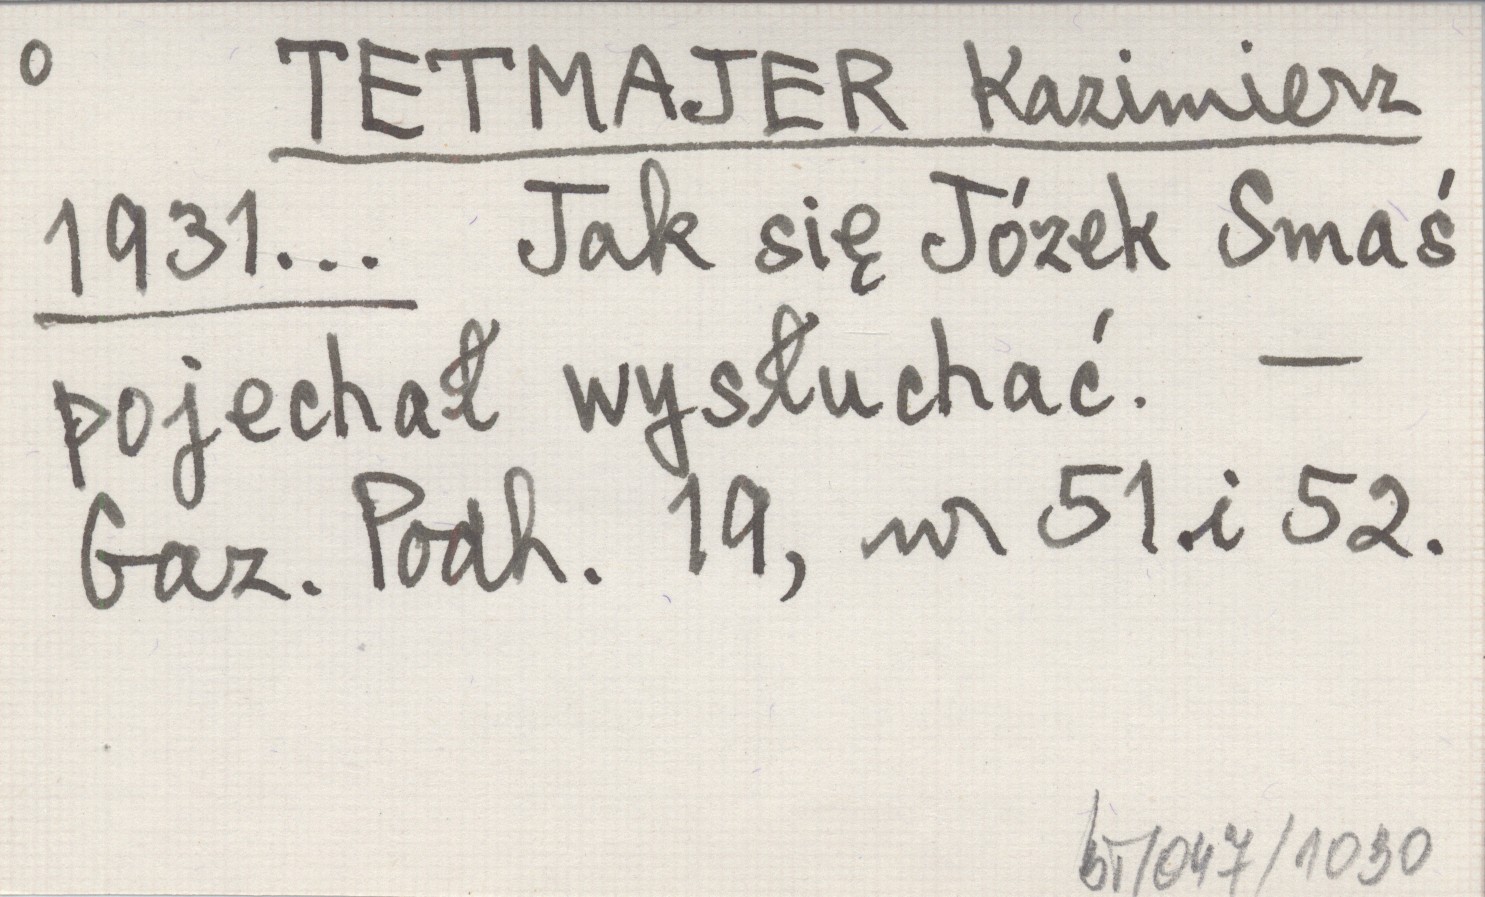 o TETMAJER Kazimierz
1931... Jak się Józek Smaś
pojechał wysłuchać. —
Gaz. Podh. 19, nr 51 i 52.
/047/1030